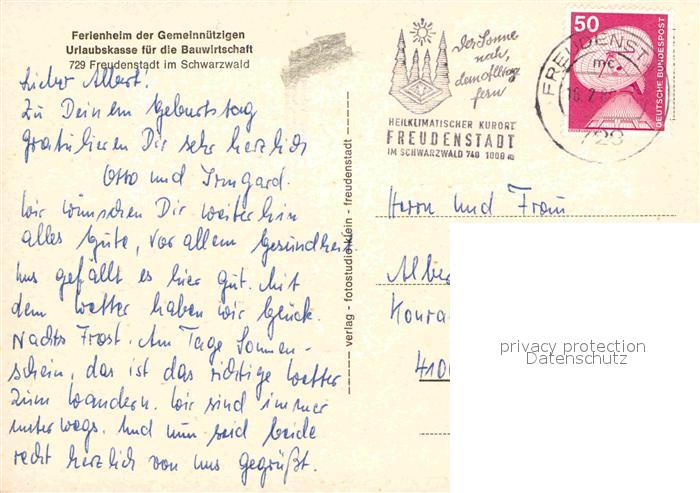 Ferienheim der Gemeinnützigen
Urlaubskasse für die Bauwirtschaft
729 Freudenstadt im Schwarzwald
Lieber Albert!
Zu Deinem Geburtstag
gratulieren Dir sehr herzlich
Otto und Irmgard.
Wir wünschen Dir weiterhin
alles Gute, vor allem Gesundheit.
Uns gefällt es hier gut. Mit
dem Wetter haben wir Glück.
Nachts Frost. Am Tage Sonnen-
schein, das ist das richtige Wetter
zum Wandern. Wir sind immer
unterwegs. Und nun seid beide
recht herzlich von uns gegrüßt.
verlag - fotostudio klein - freudenstadt
Der Sonne
nah,
dem Alltag
fern
HEILKLIMATISCHER KURORT
FREUDENSTADT
IM SCHWARZWALD 740 1000 m
FREUDENST
mc
729
50
DEUTSCHE BUNDESPOST
Herrn und Frau
Alber
Konra
4100
privacy protection
Datenschutz